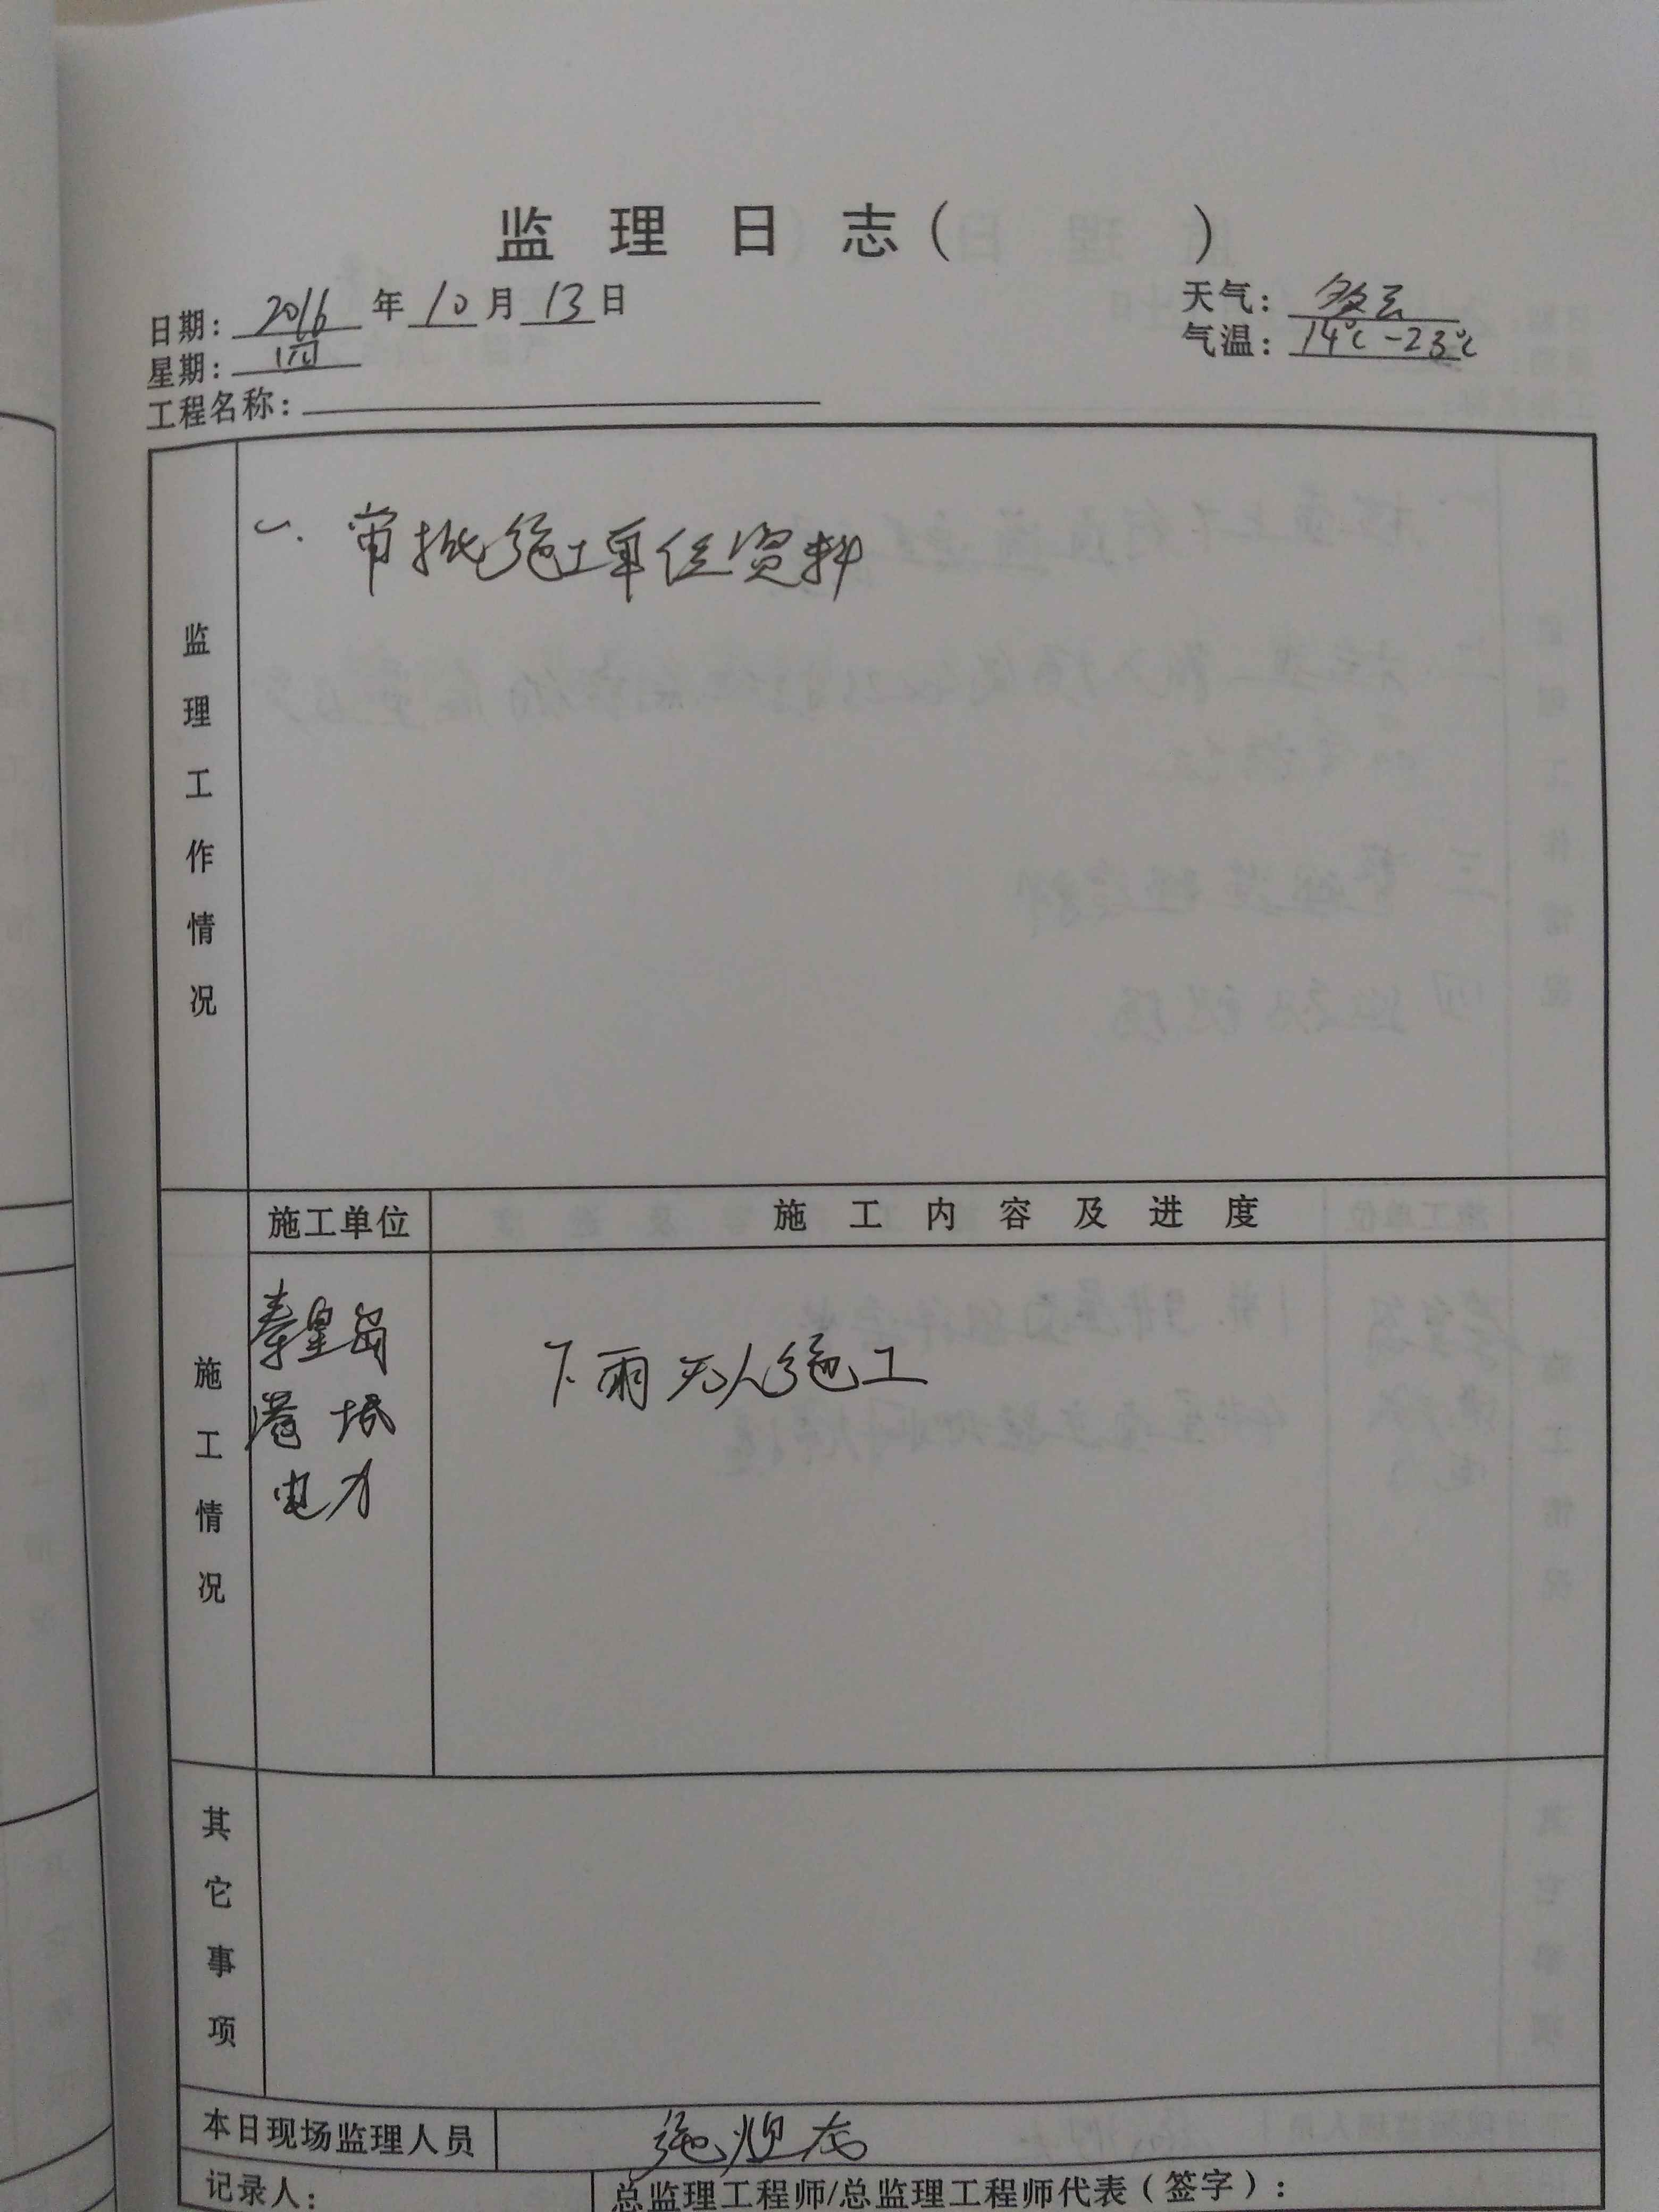 监理日志（ ）
日期：2016年10月13日
天气：多云
星期：四
气温：14℃-23℃
工程名称：
监理工作情况
一、审批施工单位资料
施工单位
施工内容及进度
施工情况
秦皇岛
港城
电力
下雨无人施工
其它事项
本日现场监理人员
记录人：
总监理工程师/总监理工程师代表（签字）：